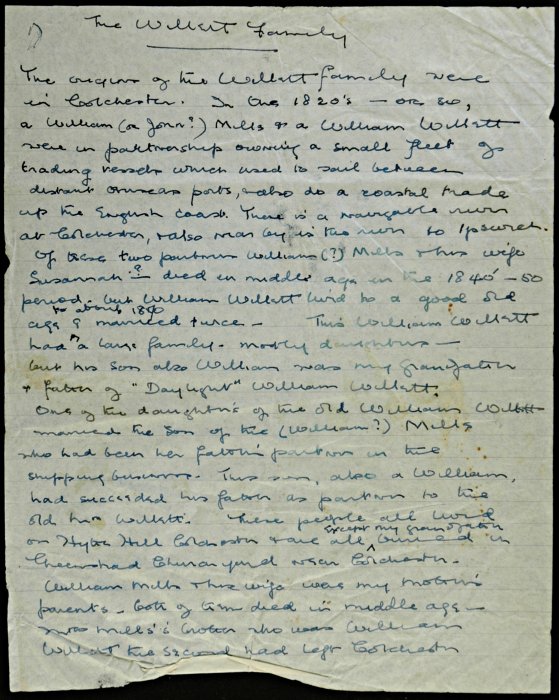 1) The Willett Family
The origins of the Willett family were
in Colchester. In the 1820's – or so,
a William (or John?) Mills & a William Willett
were in partnership owning a small fleet of
trading vessels which used to sail between
distant overseas ports, & also do a coastal trade
up the English coast. There is a navigable river
at Colchester, & also near by is the river to Ipswich.
Of these two partners William (?) Mills & his wife
Susannah ? died in middle age in the 1840 – 50
period. but William Willett liv'd to a good old
age to about 1880 & married twice – This William Willett
had a large family – mostly daughters –
but his son also William was my Grandfather
& father of "Daylight" William Willett.
One of the daughters of the old William Willett
married the son of the (William?) Mills
who had been her father's partner in the
shipping business. This son, also a William,
had succeeded his father as partner to the
old man Willett. These people all lived
on Hythe Hill Colchester & are all except my grandfather buried in
Greenstead Churchyard near Colchester.
William Mills & his wife was my mother's
parents – both of them died in middle age –
Mrs Mills's brother who was William
Willett the Second had left Colchester